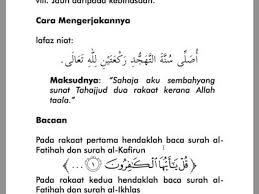 viii. Jauh daripada kebinasaan.
Cara Mengerjakannya
lafaz niat:
أُصَلِّى سُنَّةَ التَّهَجُّدِ رَكْعَتَيْنِ لِلَّهِ تَعَالَى.
Maksudnya: “Sahaja aku sembahyang
sunat Tahajjud dua rakaat kerana Allah
taala.”
Bacaan
Pada rakaat pertama hendaklah baca surah al-
Fatihah dan surah al-Kafirun
﴿ قُلْ يَٰٓأَيُّهَا ٱلْكَٰفِرُونَ ١ ... ﴾
Pada rakaat kedua hendaklah baca surah
al-Fatihah dan surah al-Ikhlas